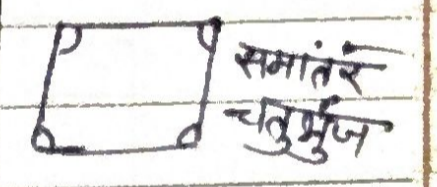 समांतर
चतुर्भुज